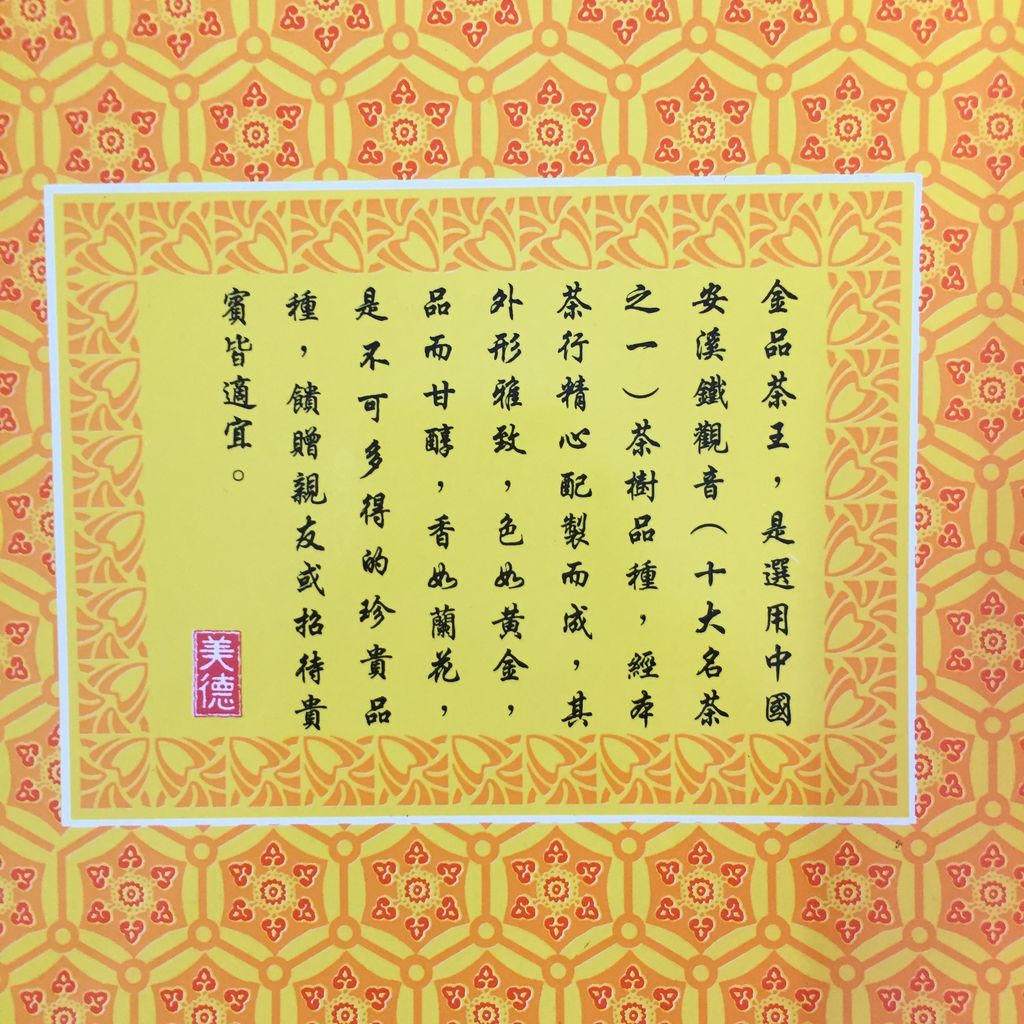 金品茶王，是選用中國
安溪鐵觀音（十大名茶
之一）茶樹品種，經本
茶行精心配製而成，其
外形雅致，色如黃金，
品而甘醇，香如蘭花，
是不可多得的珍貴品
種，饋贈親友或招待貴
賓皆適宜。
美德